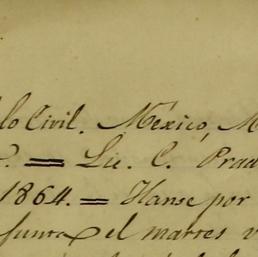 lo Civil. México, M
= Lic. C. Prad
1864. = Hanse por
junta el martes v